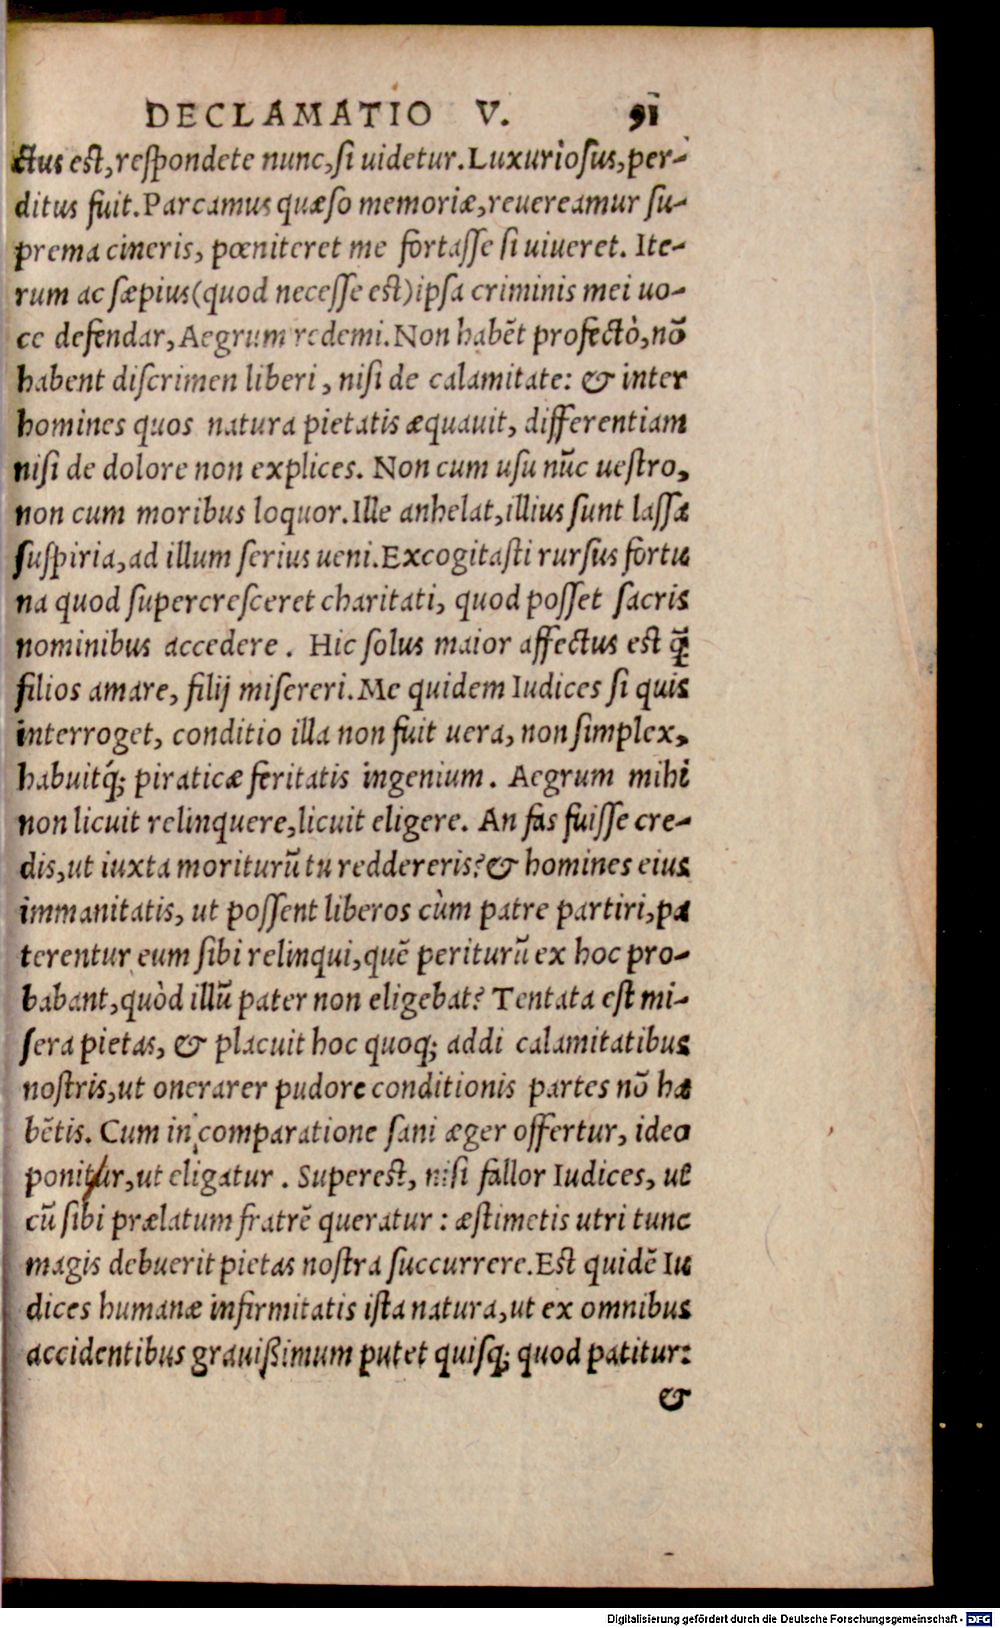 DECLAMATIO V. 91
ctus est, respondete nunc, si uidetur. Luxuriosus, per-
ditus fuit. Parcamus quæso memoriæ, reuereamur su-
prema cineris, pœniteret me fortasse si uiueret. Ite-
rum ac sæpius (quod necesse est) ipsa criminis mei uo-
ce defendar, Aegrum redemi. Non habēt profectò, nō
habent discrimen liberi, nisi de calamitate: & inter
homines quos natura pietatis æquauit, differentiam
nisi de dolore non explices. Non cum usu nūc uestro,
non cum moribus loquor. Ille anhelat, illius sunt lassæ
suspiria, ad illum serius ueni. Excogitasti rursus fortu
na quod supercresceret charitati, quod posset sacris
nominibus accedere. Hic solus maior affectus est q̃
filios amare, filij misereri. Me quidem Iudices si quis
interroget, conditio illa non fuit uera, non simplex,
habuitq́; piraticæ feritatis ingenium. Aegrum mihi
non licuit relinquere, licuit eligere. An fas fuisse cre-
dis, ut iuxta moriturū tu reddereris? & homines eius
immanitatis, ut possent liberos cùm patre partiri, pa
terentur eum sibi relinqui, quē periturū ex hoc pro-
babant, quòd illū pater non eligebat? Tentata est mi-
sera pietas, & placuit hoc quoq; addi calamitatibus
nostris, ut onerarer pudore conditionis partes nō ha
bētis. Cum in comparatione sani æger offertur, ideo
ponitur, ut eligatur. Superest, nisi fallor Iudices, ut
cū sibi prælatum fratrē queratur: æstimetis utri tunc
magis debuerit pietas nostra succurrere. Est quidē Iu
dices humanæ infirmitatis ista natura, ut ex omnibus
accidentibus grauißimum putet quisq; quod patitur:
&
Digitalisierung gefördert durch die Deutsche Forschungsgemeinschaft - DFG